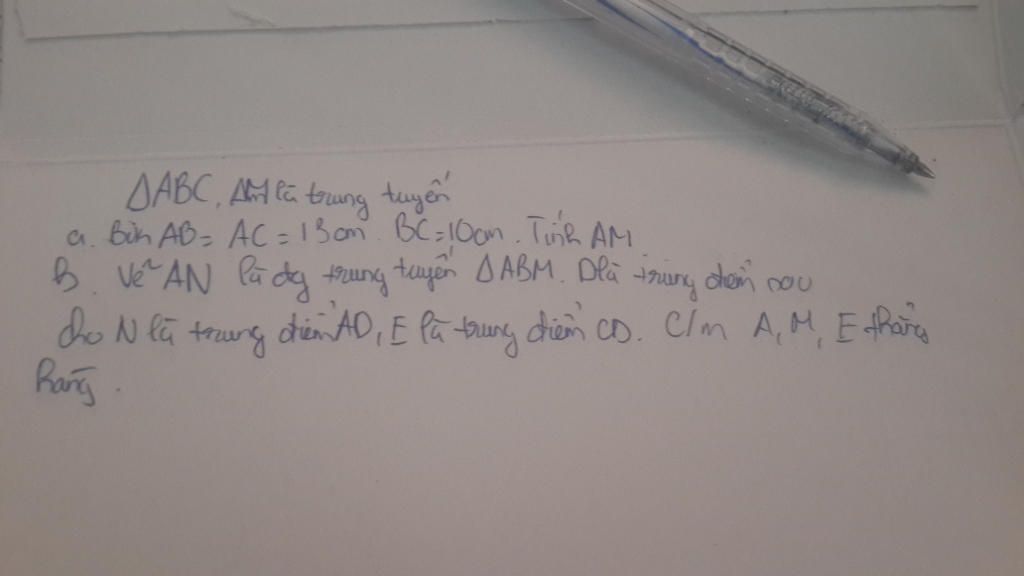 ΔABC, AM là trung tuyến
a. Biết AB = AC = 13cm. BC = 10cm. Tính AM
b. Vẽ AN là đg trung tuyến ΔABM. D là trung điểm sao
cho N là trung điểm AD, E là trung điểm CD. C/m A, M, E thẳng
hàng.